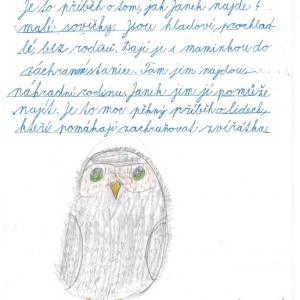 Je to příběh o tom, jak Janek najde 4
malé sovičky. Jsou hladové, prochlad-
lé, bez rodičů. Dají je s maminkou do
záchranné stanice. Tam jim najdou
náhradní rodinu. Janek jim ji pomůže
najít. Je to moc pěkný příběh o lidech,
kteří pomáhají zachraňovat zvířátka.